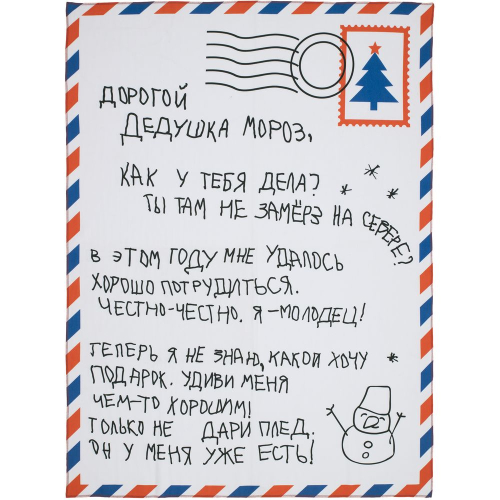 ДОРОГОЙ
ДЕДУШКА МОРОЗ,
КАК У ТЕБЯ ДЕЛА?
ТЫ ТАМ НЕ ЗАМЁРЗ НА СЕВЕРЕ?
В ЭТОМ ГОДУ МНЕ УДАЛОСЬ
ХОРОШО ПОТРУДИТЬСЯ.
ЧЕСТНО-ЧЕСТНО. Я-МОЛОДЕЦ!
ТЕПЕРЬ Я НЕ ЗНАЮ, КАКОЙ ХОЧУ
ПОДАРОК. УДИВИ МЕНЯ
ЧЕМ-ТО ХОРОШИМ!
ТОЛЬКО НЕ ДАРИ ПЛЕД.
ОН У МЕНЯ УЖЕ ЕСТЬ!